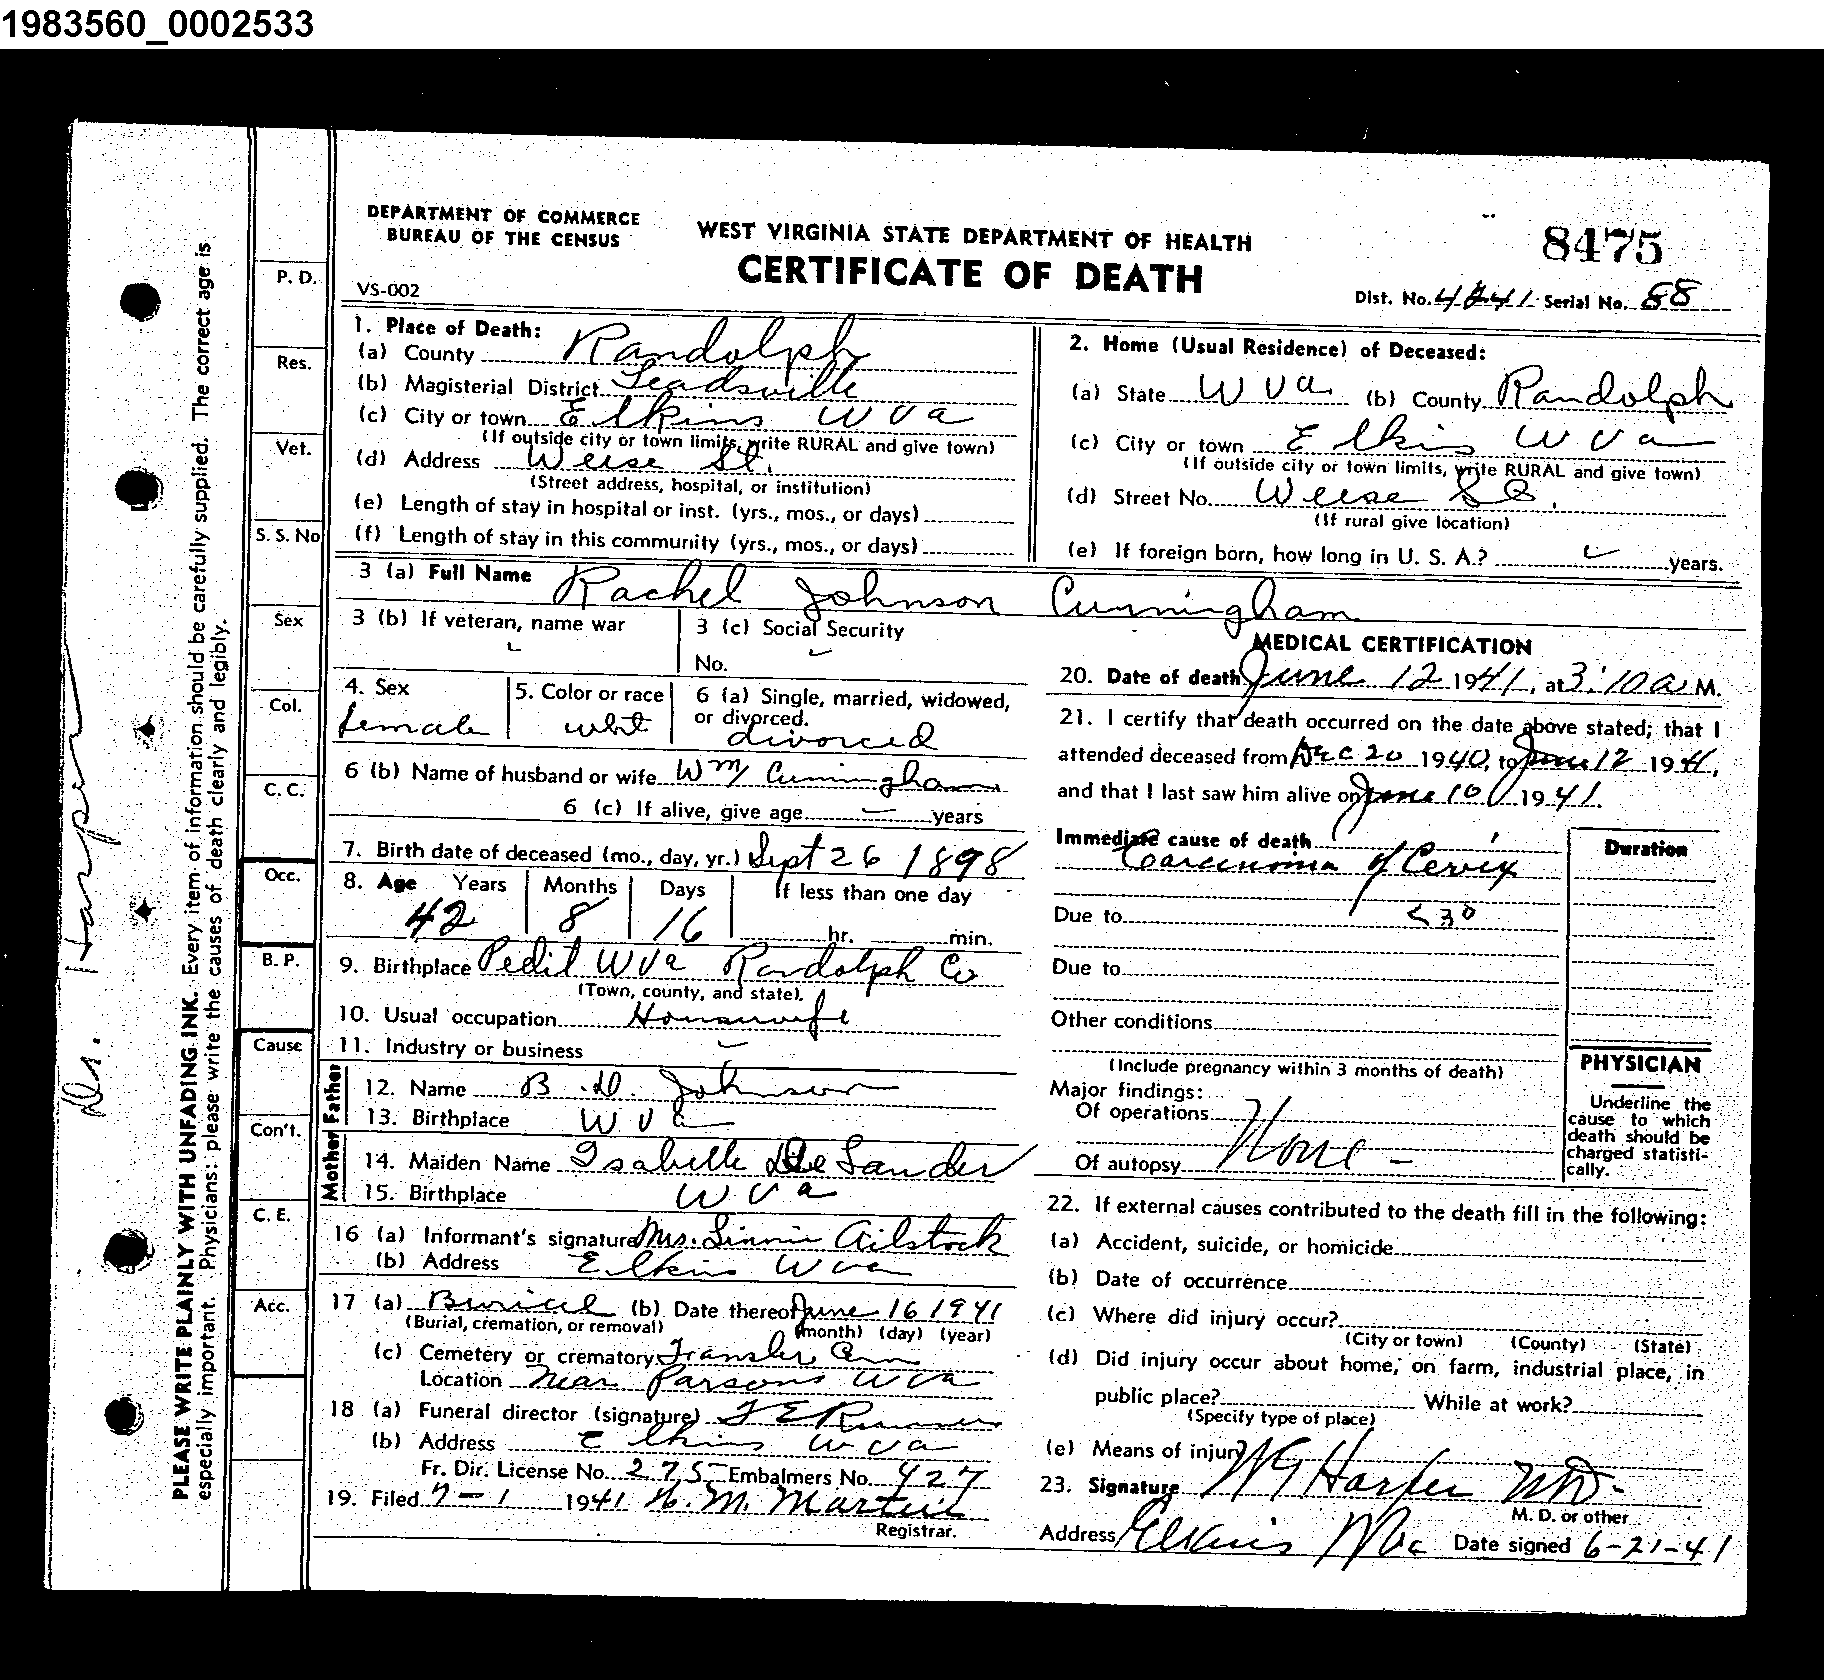 1983560_0002533
DEPARTMENT OF COMMERCE
BUREAU OF THE CENSUS
VS-002
WEST VIRGINIA STATE DEPARTMENT OF HEALTH
CERTIFICATE OF DEATH
8475
Dist. No. 4241 Serial No. 88
1. Place of Death:
(a) County Randolph
(b) Magisterial District Leadsville
(c) City or town Elkins W Va
(If outside city or town limits, write RURAL and give town)
(d) Address Weese St.
(Street address, hospital, or institution)
(e) Length of stay in hospital or inst. (yrs., mos., or days)
(f) Length of stay in this community (yrs., mos., or days)
2. Home (Usual Residence) of Deceased:
(a) State W Va (b) County Randolph
(c) City or town Elkins W Va
(If outside city or town limits, write RURAL and give town)
(d) Street No. Weese St.
(If rural give location)
(e) If foreign born, how long in U. S. A.? years.
3 (a) Full Name Rachel Johnson Cunningham
3 (b) If veteran, name war
3 (c) Social Security
No.
4. Sex
female
5. Color or race
whit
6 (a) Single, married, widowed,
or divorced.
divorced
6 (b) Name of husband or wife Wm Cunningham
6 (c) If alive, give age years
7. Birth date of deceased (mo., day, yr.) Sept 26 1898
8. Age Years Months Days If less than one day
42 8 16 hr. min.
9. Birthplace Pedit W Va Randolph Co
(Town, county, and state)
10. Usual occupation Housewife
11. Industry or business
Father
12. Name B. D. Johnson
13. Birthplace W Va
Mother
14. Maiden Name Isabelle Lander
15. Birthplace W Va
16 (a) Informant's signature Mrs. Linnie Ailstock
(b) Address Elkins W Va
17 (a) Burial (b) Date thereof June 16 1941
(Burial, cremation, or removal) (month) (day) (year)
(c) Cemetery or crematory Cem
Location Near Parsons W Va
18 (a) Funeral director (signature)
(b) Address Elkins W Va
Fr. Dir. License No. 275 Embalmers No. 427
19. Filed 7-1 1941 N. M. Martin
Registrar.
MEDICAL CERTIFICATION
20. Date of death June 12 1941, at 3:10 a M.
21. I certify that death occurred on the date above stated; that I
attended deceased from Dec 20 1940, to June 12 1941,
and that I last saw him alive on June 10 1941.
Immediate cause of death
Carcinoma of Cervix
Duration
Due to
Due to
Other conditions
(Include pregnancy within 3 months of death)
Major findings:
Of operations
None -
Of autopsy
PHYSICIAN
Underline the
cause to which
death should be
charged statisti-
cally.
22. If external causes contributed to the death fill in the following:
(a) Accident, suicide, or homicide
(b) Date of occurrence
(c) Where did injury occur?
(City or town) (County) (State)
(d) Did injury occur about home, on farm, industrial place, in
public place? While at work?
(Specify type of place)
(e) Means of injury
23. Signature W G Harper MD.
M. D. or other
Address Elkins W Va Date signed 6-21-41
P. D.
Res.
Vet.
S. S. No
Sex
Col.
C. C.
Occ.
B. P.
Cause
Con't.
C. E.
Acc.
PLEASE WRITE PLAINLY WITH UNFADING INK. Every item of information should be carefully supplied. The correct age is
especially important. Physicians: please write the causes of death clearly and legibly.
Dr. Harper